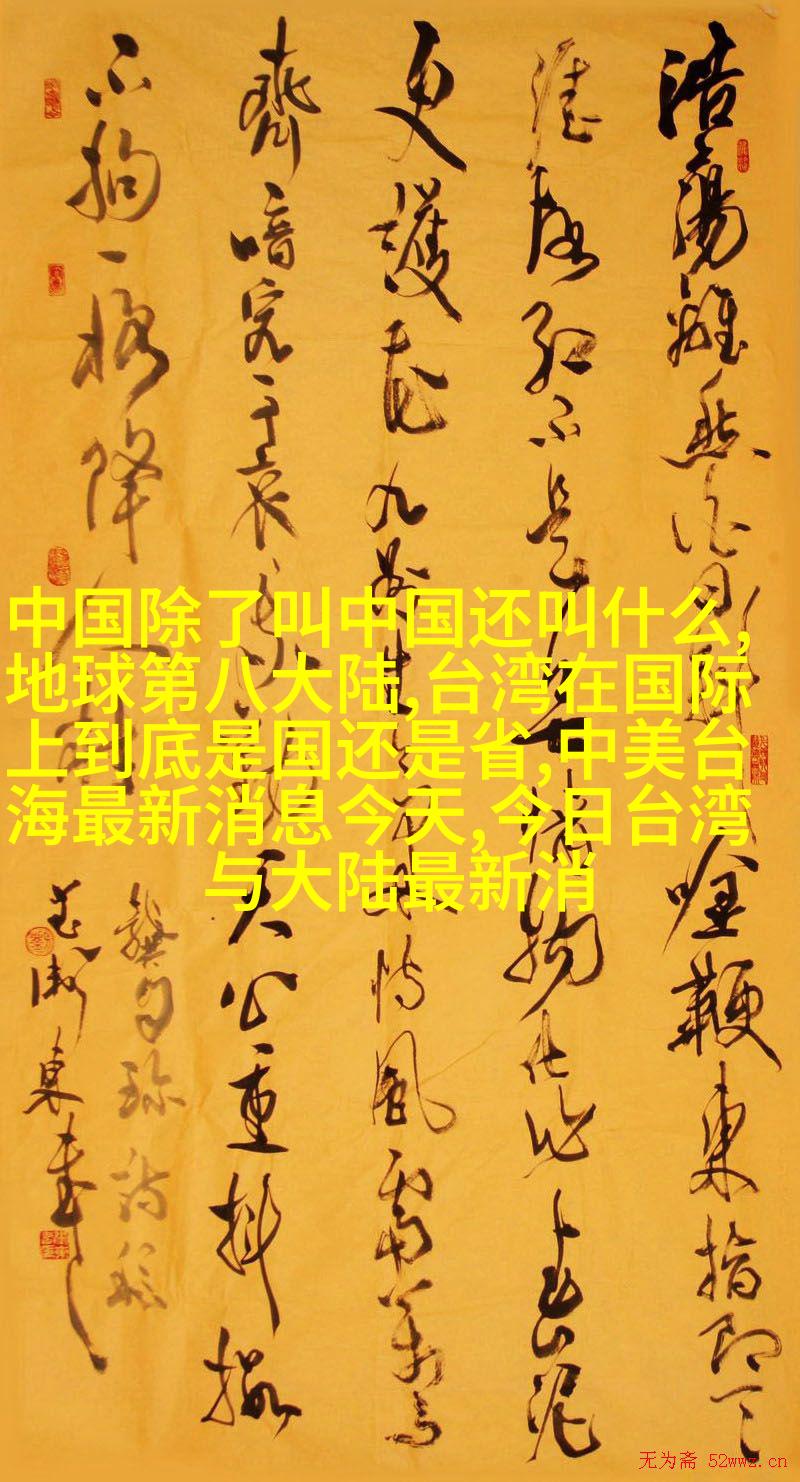 浩蕩離愁白日斜吟鞭東指即天
涯落紅不是無情物化作春泥
更護花九州生氣恃風雷萬馬
齊喑究可哀我勸天公重抖擻
不拘一格降人
龔自珍詩
東書
中国除了叫中国还叫什么,
地球第八大陆,台湾在国际
上到底是国还是省,中美台
海最新消息今天,今日台湾
与大陆最新消
无为斋 52wwz.cn